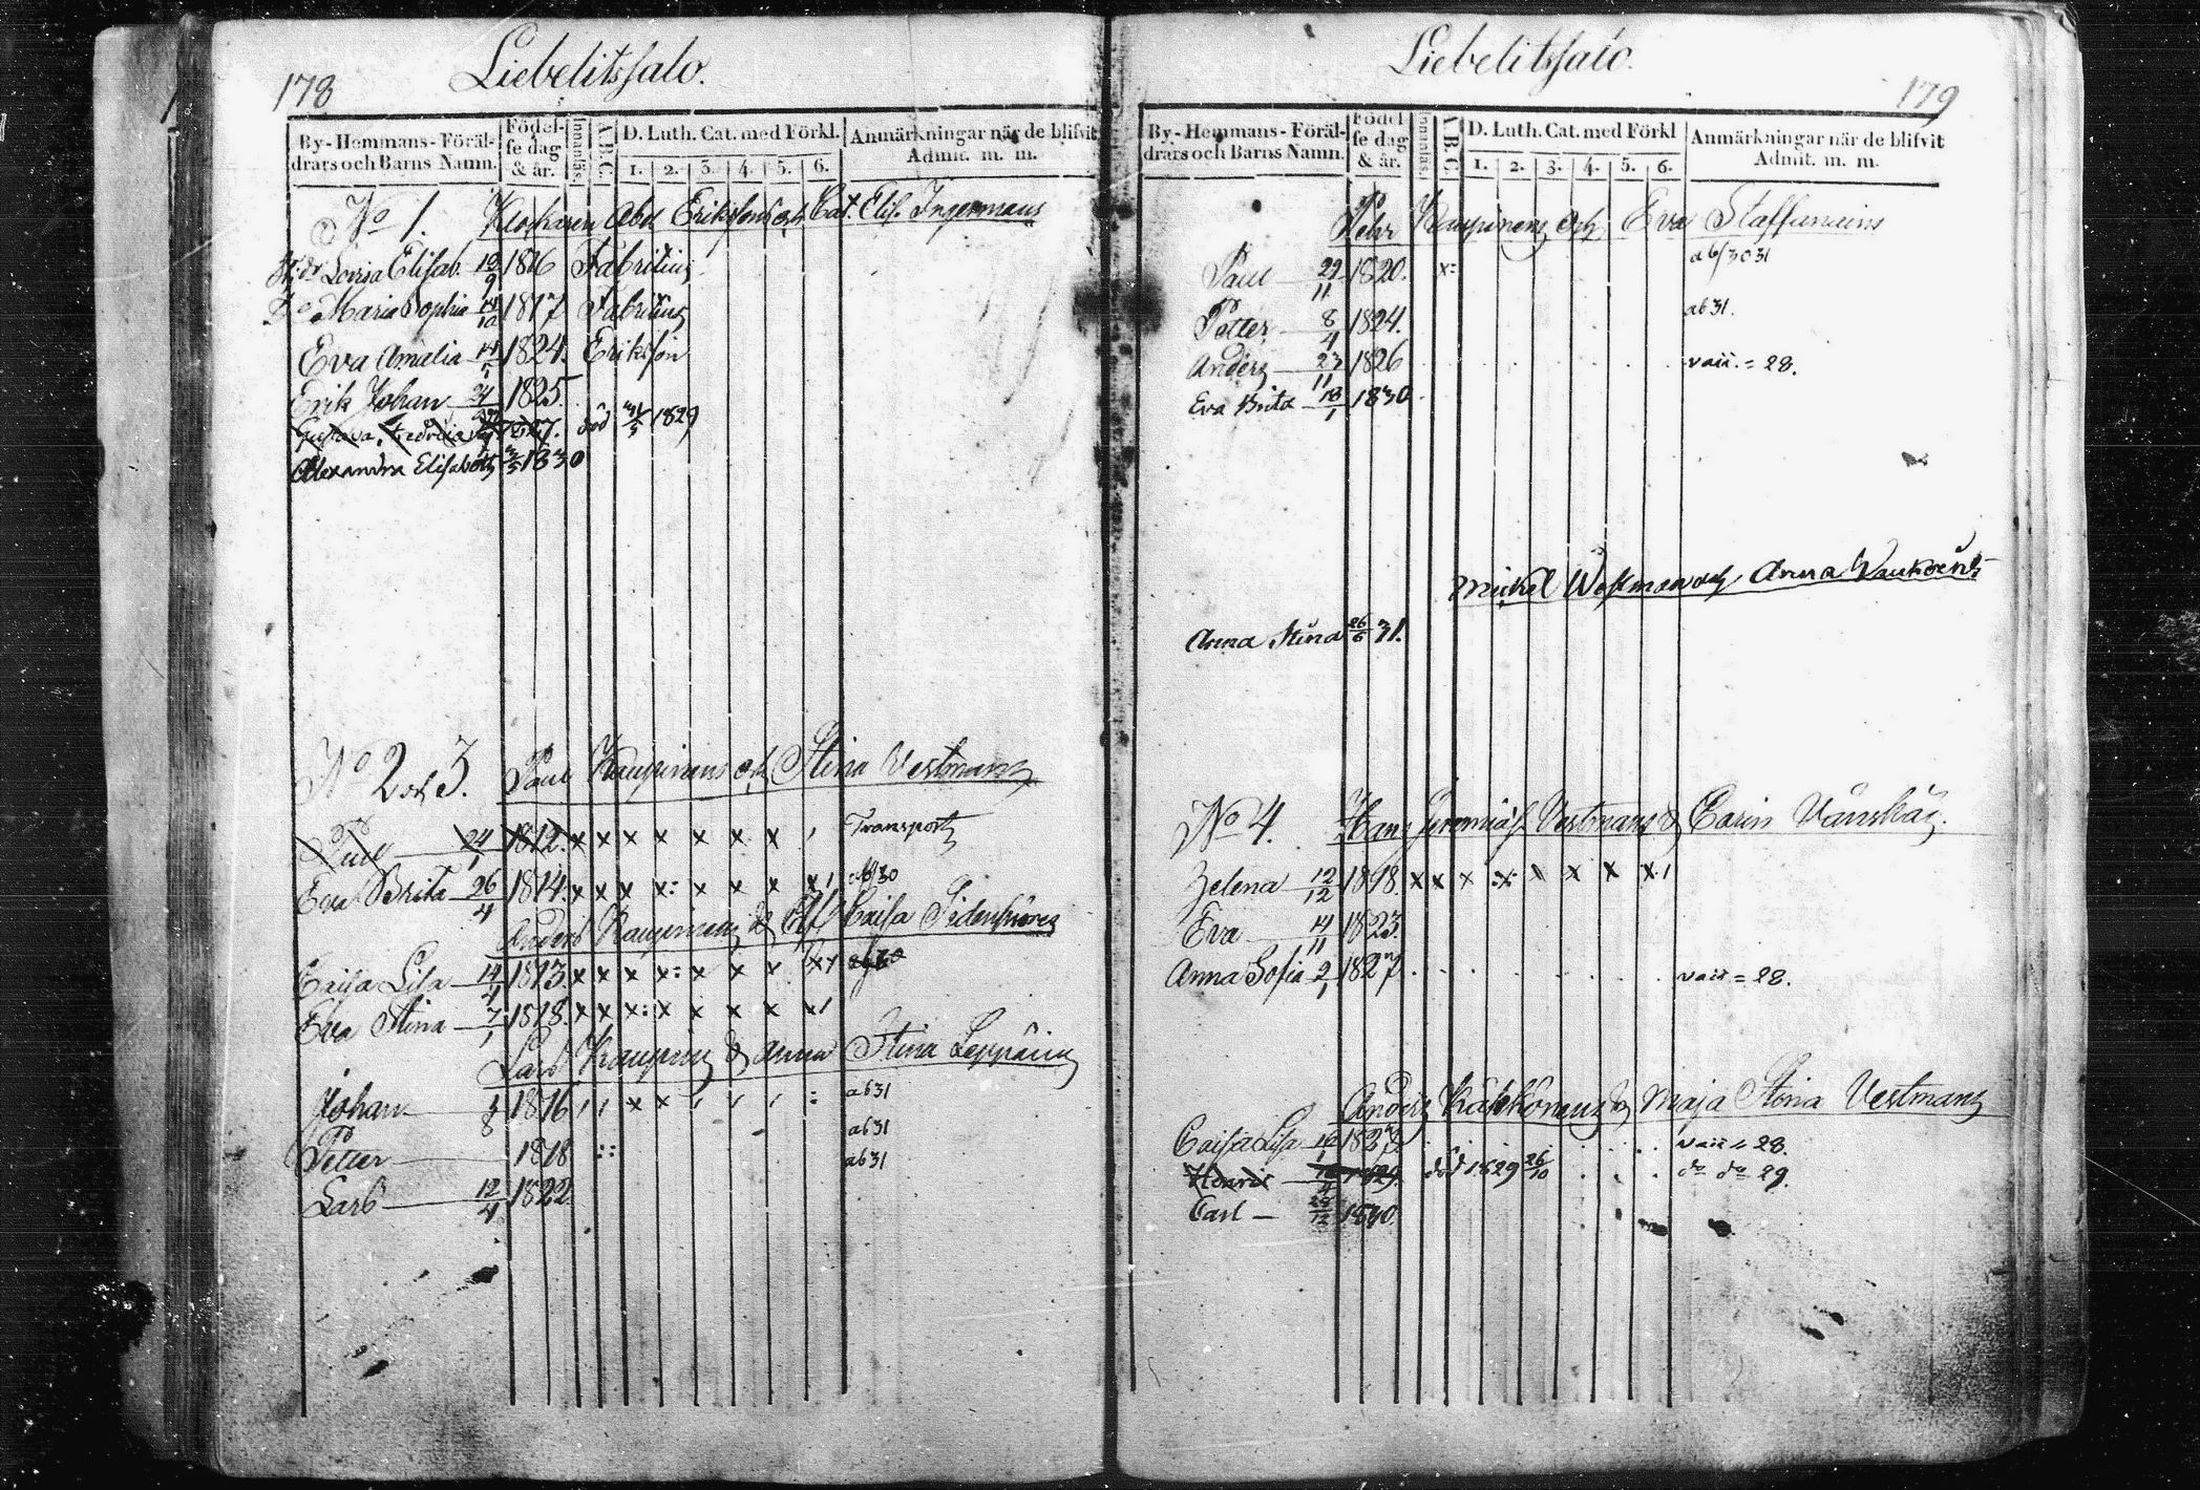 178
Liebelitssalo.
By-Hemmans-Föräl-
drars och Barns Namn.
Födel-
se dag
& år.
Innanläs.
A.B.C.
D. Luth. Cat. med Förkl.
1. 2. 3. 4. 5. 6.
Anmärkningar när de blifvit
Admit. m. m.
No 1. Abel Eriksons och Cat. Elis. Ingermans
Lovisa Elisab. 10/9 1816 Fabritius
Do Maria Sophia 14/10 1817 Fabritius
Eva Amalia 14/1 1824. Erikson
Erik Johan 1825.
Gustava 1827. död 1829
Alexandra Elisabeth 1830
No 2 och 3. Paul Kaupinens och Stina Vestmans
Paul 24/1 1812. x x x x x x x , Transport
Eva Brita 26/4 1814. x x x x: x x x x,
Anders Kaupinens & Caisa
Caisa Lisa 14/4 1813. x x x x: x x x
Eva Stina 7/1 1818. x x x: x x x x x,
Lars Kaupins & Anna Stina Leppäins
Johan 1816 , , x x , , , : ab 31
Petter 1818 :: ab 31
ab 31
Lars 12/4 1822
Liebelitssalo.
179
By-Hemmans-Föräl-
drars och Barns Namn.
Födel-
se dag
& år.
Innanläs.
A.B.C.
D. Luth. Cat. med Förkl
1. 2. 3. 4. 5. 6.
Anmärkningar när de blifvit
Admit. m. m.
Pehr Kaupinens och Eva Staffanains
Paul 29/11 1820. x:
Petter 8/4 1824. ab 31.
Anders 23/11 1826 vacc. = 28.
Eva Brita 18/1 1830
Mickel Westman och Anna
Anna Stina 26/6 31.
No 4. Hans Vestmans & Carin
Helena 12/12 1818. x x x :x: x x x x ,
Eva 14/11 1823.
Anna Sofia 2/1 1827 vacc = 28.
Anders & Maja Stina Vestmans
Caisa Lisa 1827 vacc = 28.
Henric 1829. död 1829 26/10 do do 29.
Carl 1830